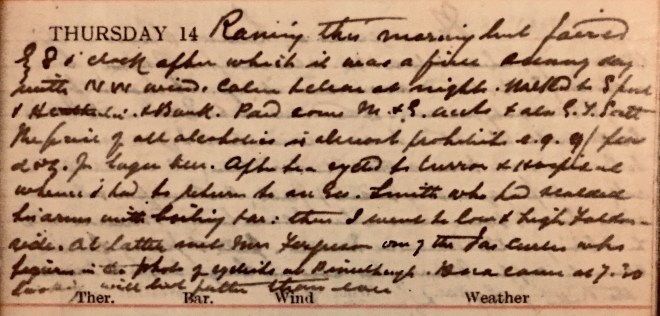 THURSDAY 14 Raining this morning but faired
8 o'clock after which it was a fine sunny day
with NW wind. Calm & clear at night. Walked to
& Bank. Paid some M. & G. accts & also G. T. Scott
The price of all alcoholics is almost prohibitive e.g. 9/ per
doz. for lager beer. After tea cycled to & Hospital
whence I had to return to see Geo. Smith who had scalded
his arms with boiling tar: then I went to Low & High
side. At latter met Mrs Ferguson one of the who
figures in the photo of cyclists at. came at 7.30
looking well but fatter than ever
Ther. Bar. Wind Weather